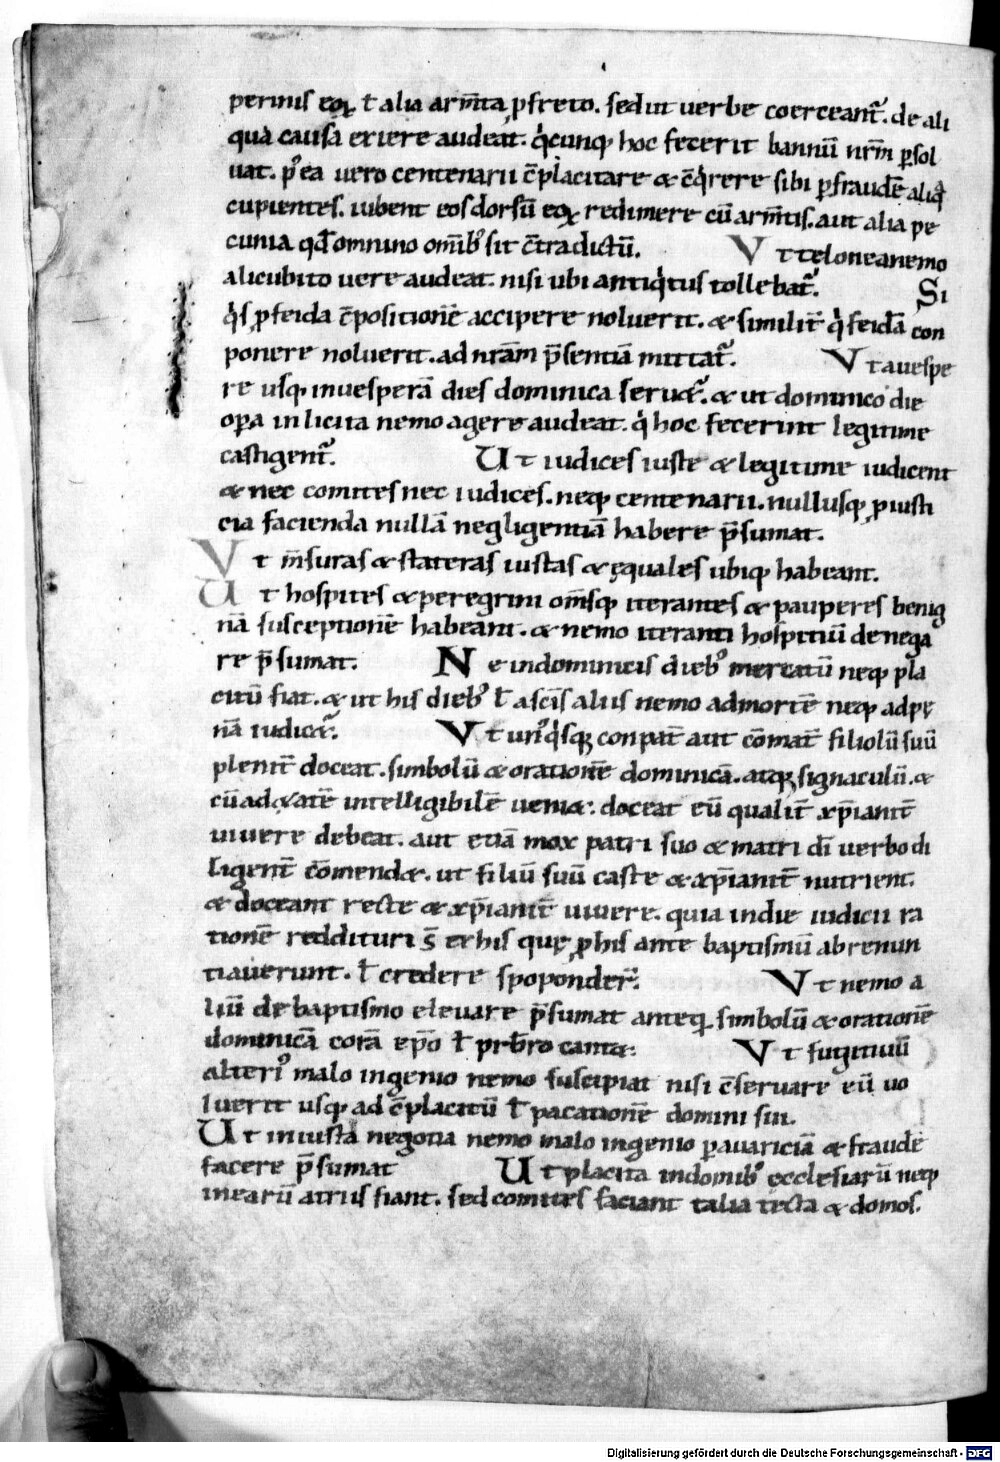 permis eoꝝ ł alia arm̅ta ꝓfreto. sed ut uerbe coerceant᷑. de ali
qua causa exiere audeat. qͥcunq; hoc fecerit bannū nr̅m ꝑsol
uat. p̾ea uero centenarii c̅placitare & c̅qͥrere sibi ꝑfraudē aliq̅
cupientes. iubent eos dorsū eoꝝ redimere cū arm̅tis. aut alia pe
cunia qd̅ omnino om̅ib᷒ sit c̅tradictū. Vt teloneanemo
alicubito uere audeat. nisi ubi antiqͥtus tollebat᷑. Si
qͥs ꝓfeida c̅positionē accipere noluerit. & similit̅ qͥ feidā con
ponere noluerit. ad nr̅am p̅sentiā mittat᷑. Vt auespe
re usq; inuesperā dies dominica seruet᷑. & ut dominico die
oꝑa inlicita nemo agere audeat. qͥ hoc fecerint legitime
castigent᷑. Ut iudices iuste & legitime iudicent
& nec comites nec iudices. neq; centenarii. nullusq; ꝓiusti
cia facienda nullā negligentiā habere p̅sumat.
Vt m̅suras & stateras iustas & ęquales ubiq; habeant.
Ut hospites & peregrini om̅sq; iterantes & pauperes benig
nā susceptionē habeant. & nemo iteranti hospitiū denega
re p̅sumat. Ne indominicis dieb᷒ mercatū neq; pla
citū fiat. & ut his dieb᷒ ł ascīs aliis nemo admortē neq; adpę
nā iudicet᷑. Vt un᷒qͥsq; conpat̅ aut c̅mat̅ filiolū suū
plenit̅ doceat. simbolū & orationē dominicā. atq; signaculū. &
cū ad ętatē intelligibilē ueniat. doceat eū qualit̅ xp̅ianit̅
uiuere debeat. aut etiā mox patri suo & matri dī uerbo di
ligent̅ c̅mendet. ut filiū suū caste & xp̅ianit̅ nutrient.
& doceant recte & xp̅ianit̅ uiuere. quia indie iudicii ra
tionē reddituri s̅ et his quę ꝓhis ante baptismū abrenun
tiauerunt. ł credere spoponder̅. Vt nemo a
liū de baptismo eleuare p̅sumat anteq̅ simbolū & orationē
dominicā corā ep̅o ł prb̅ro cantet. Vt fugitiuū
alteri᷒ malo ingenio nemo suscipiat nisi c̅seruare eū uo
luerit usq; ad c̅placitū ł pacationē domini sui.
Ut iniusta negotia nemo malo ingenio ꝑauariciā & fraudē
facere p̅sumat Ut placita indomib᷒ ecclesiarū neq;
inearū atriis fiant. sed comites faciant talia tecta & domos.
Digitalisierung gefördert durch die Deutsche Forschungsgemeinschaft - DFG